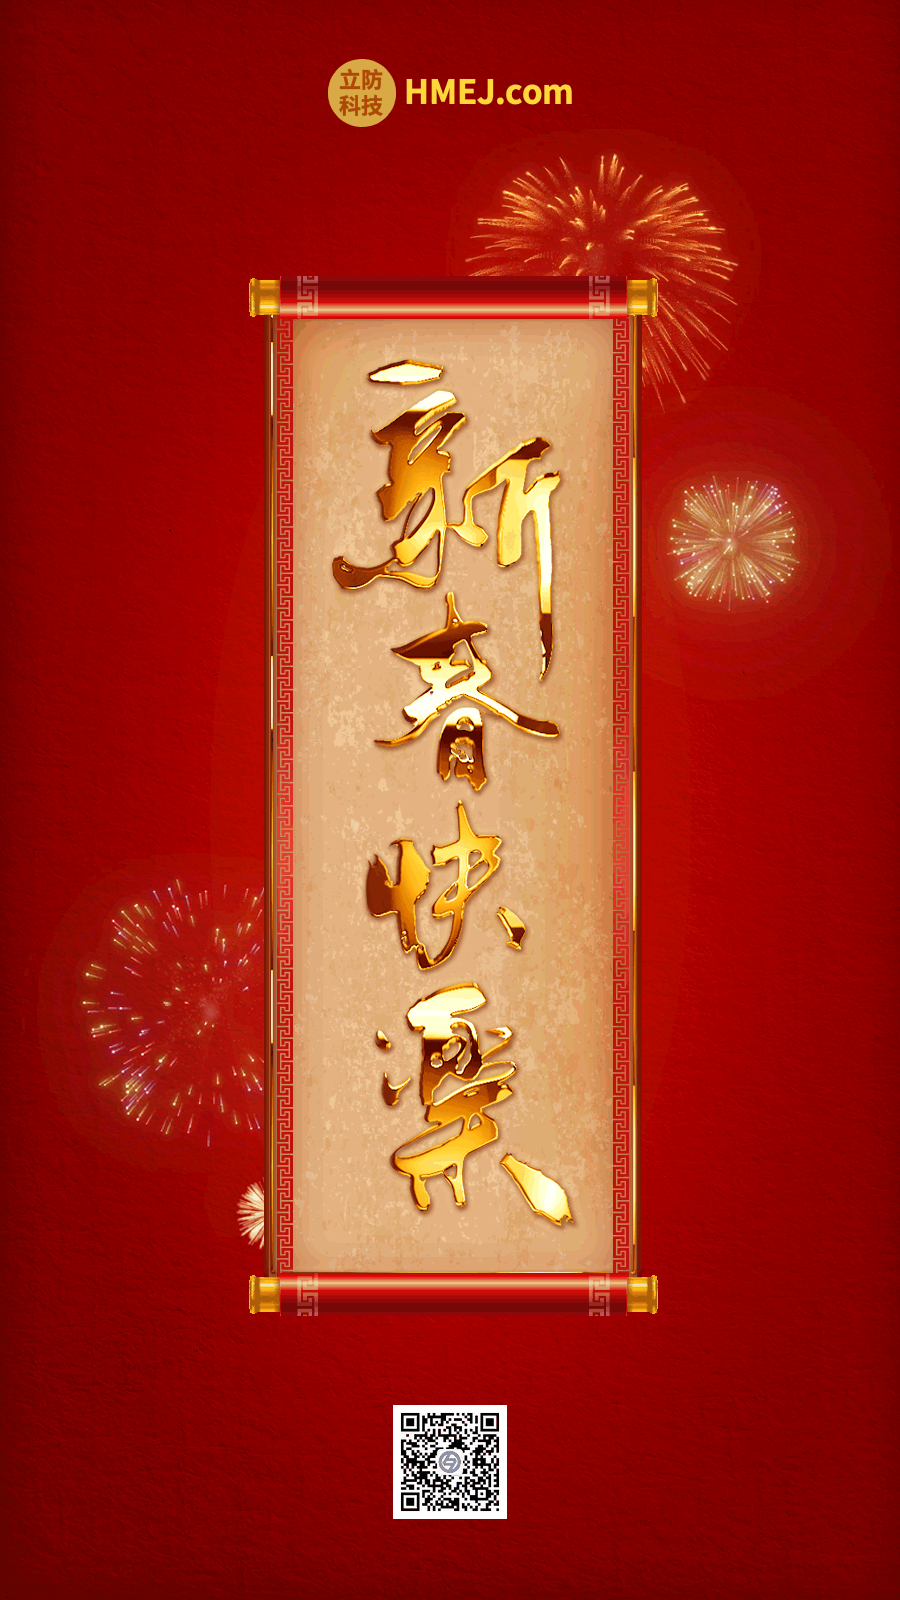 立防
科技
HMEJ.com
新春快樂